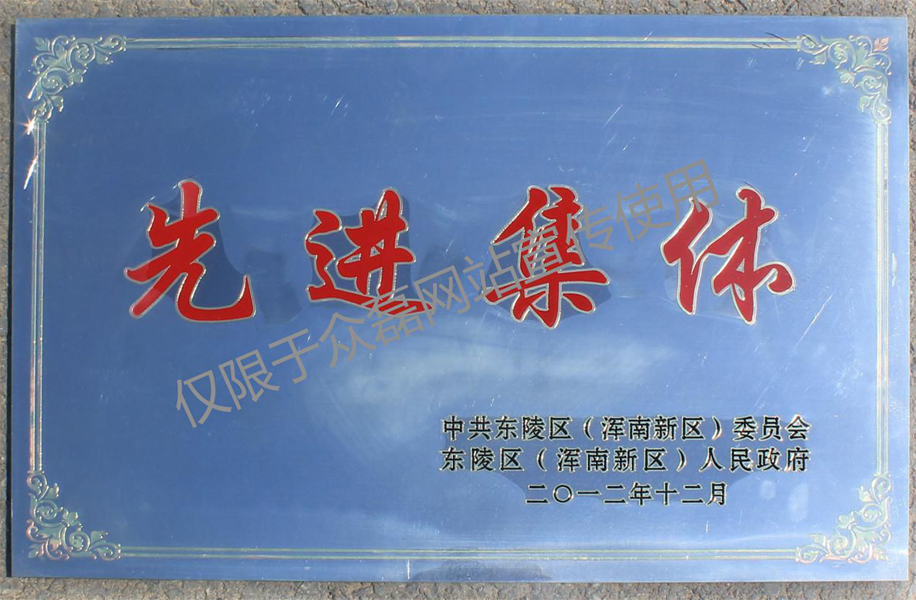 先进集体
仅限于众磊网站宣传使用
中共东陵区（浑南新区）委员会
东陵区（浑南新区）人民政府
二〇一二年十二月